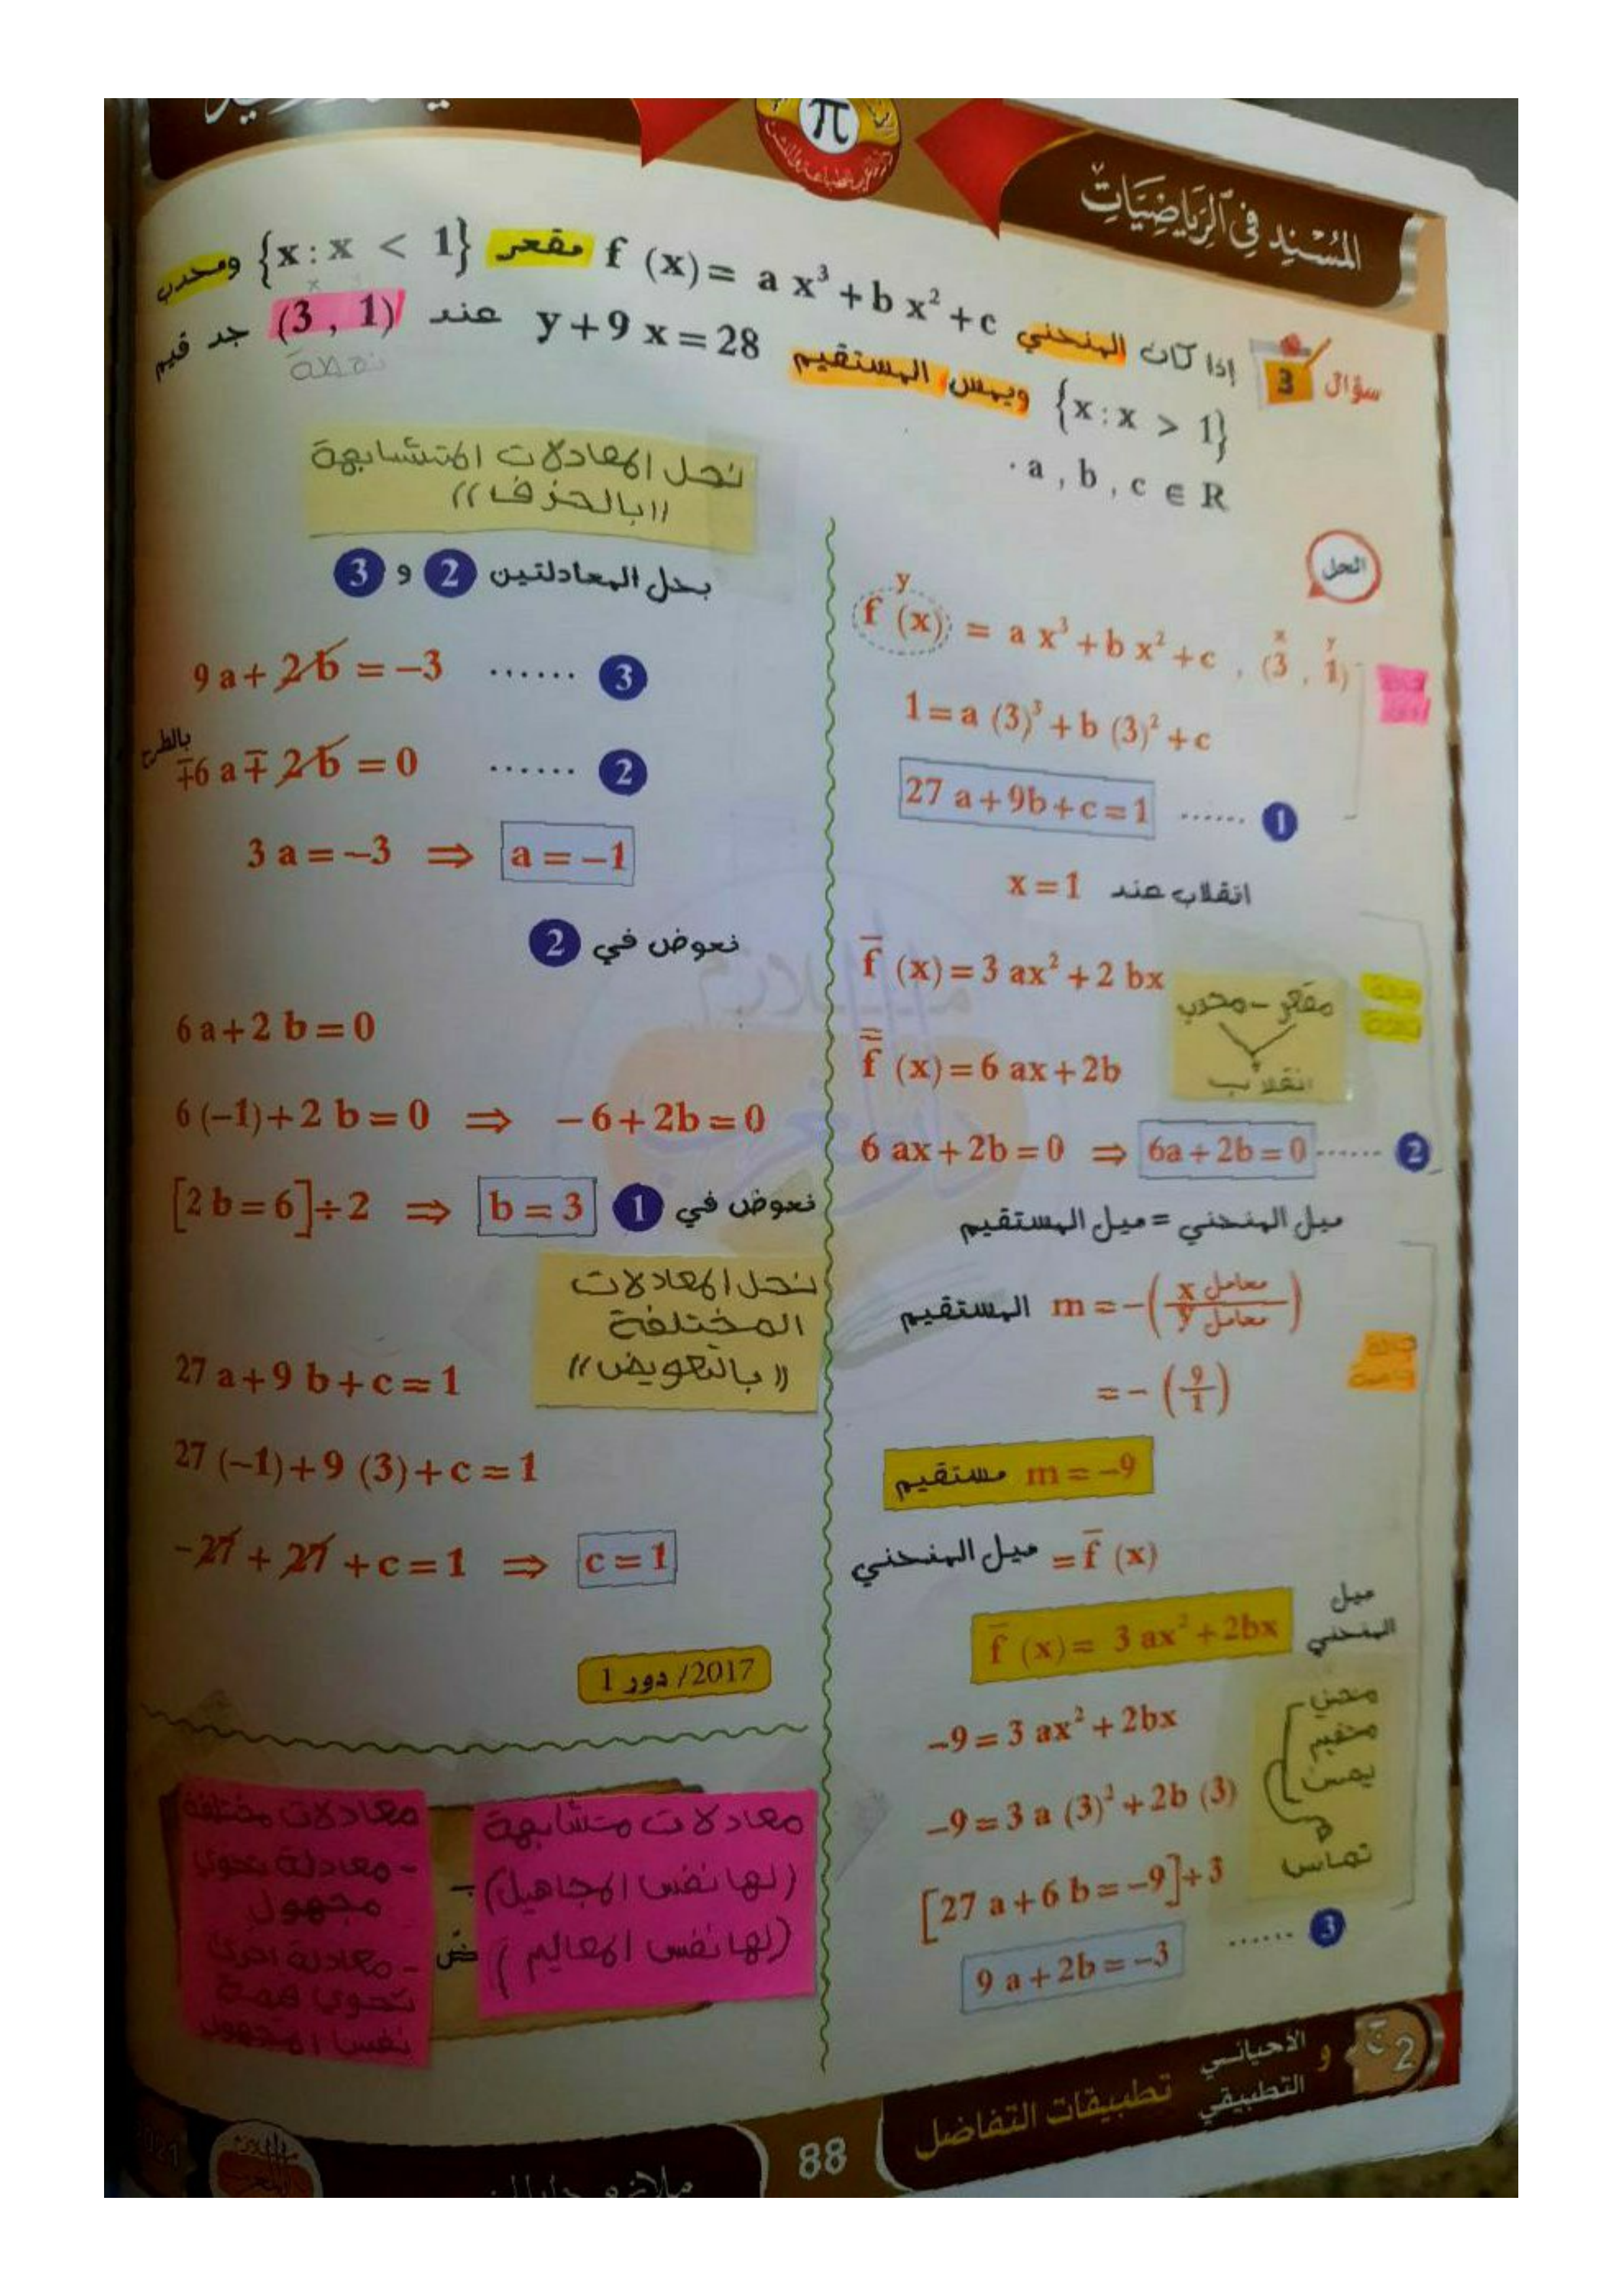 المُسْنِد في الرِّيَاضِيَّاتْ
π
سؤال 3 إذا كان المنحني f (x) = a x³ + b x² + c مقعر {x : x < 1} ومحدب
{x : x > 1} ويمس المستقيم y + 9 x = 28 عند (3 , 1) جد قيم
نقطة
. a , b , c ∈ R
الحل
y
f (x) = a x³ + b x² + c , (3 , 1)
x y
1 = a (3)³ + b (3)² + c
27 a + 9b + c = 1 ...... 1
انقلاب عند x = 1
f̄ (x) = 3 ax² + 2 bx
مقعر - محدب
انقلاب
f̿ (x) = 6 ax + 2b
6 ax + 2b = 0 ⇒ 6a + 2b = 0 ...... 2
ميل المنحني = ميل المستقيم
المستقيم m = −(معامل x / معامل y)
= − (9/1)
مستقيم m = −9
ميل المنحني = f̄ (x)
ميل المنحني f̄ (x) = 3 ax² + 2bx
−9 = 3 ax² + 2bx
−9 = 3 a (3)² + 2b (3)
[27 a + 6 b = −9] ÷ 3
9 a + 2b = −3 ...... 3
يمس
تماس
نحل المعادلات المتشابهة
((بالحذف))
بحل المعادلتين 2 و 3
9 a + 2 b = −3 ...... 3
بالطرح
∓6 a ∓ 2 b = 0 ...... 2
3 a = −3 ⇒ a = −1
نعوض في 2
6 a + 2 b = 0
6 (−1) + 2 b = 0 ⇒ − 6 + 2b = 0
[2 b = 6] ÷ 2 ⇒ b = 3 نعوض في 1
نحل المعادلات
المختلفة
((بالتعويض))
27 a + 9 b + c = 1
27 (−1) + 9 (3) + c = 1
−27 + 27 + c = 1 ⇒ c = 1
2017 / دور 1
معادلات متشابهة
(لها نفس المجاهيل)
(لها نفس المعاليم)
معادلات مختلفة
- معادلة تحوي
مجهول
- معادلة اخرى
تحوي قيمة
نفس المجهول
2 و الأحيائي
التطبيقي
تطبيقات التفاضل
88